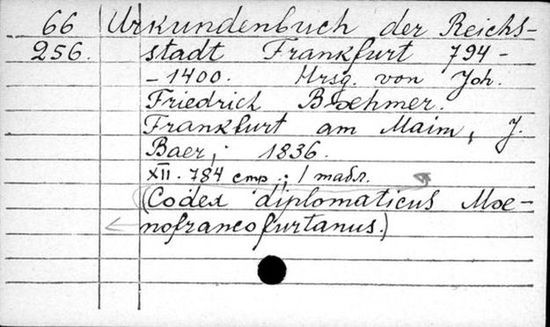 66 Urkundenbuch der Reichs-
256. stadt Frankfurt 794 -
- 1400. Hrsg. von Joh.
Friedrich Boehmer.
Frankfurt am Maim, J.
Baer, 1836.
XII. 784 стр.; 1 табл.
(Codex diplomaticus Moe-
nofrancofurtanus.)